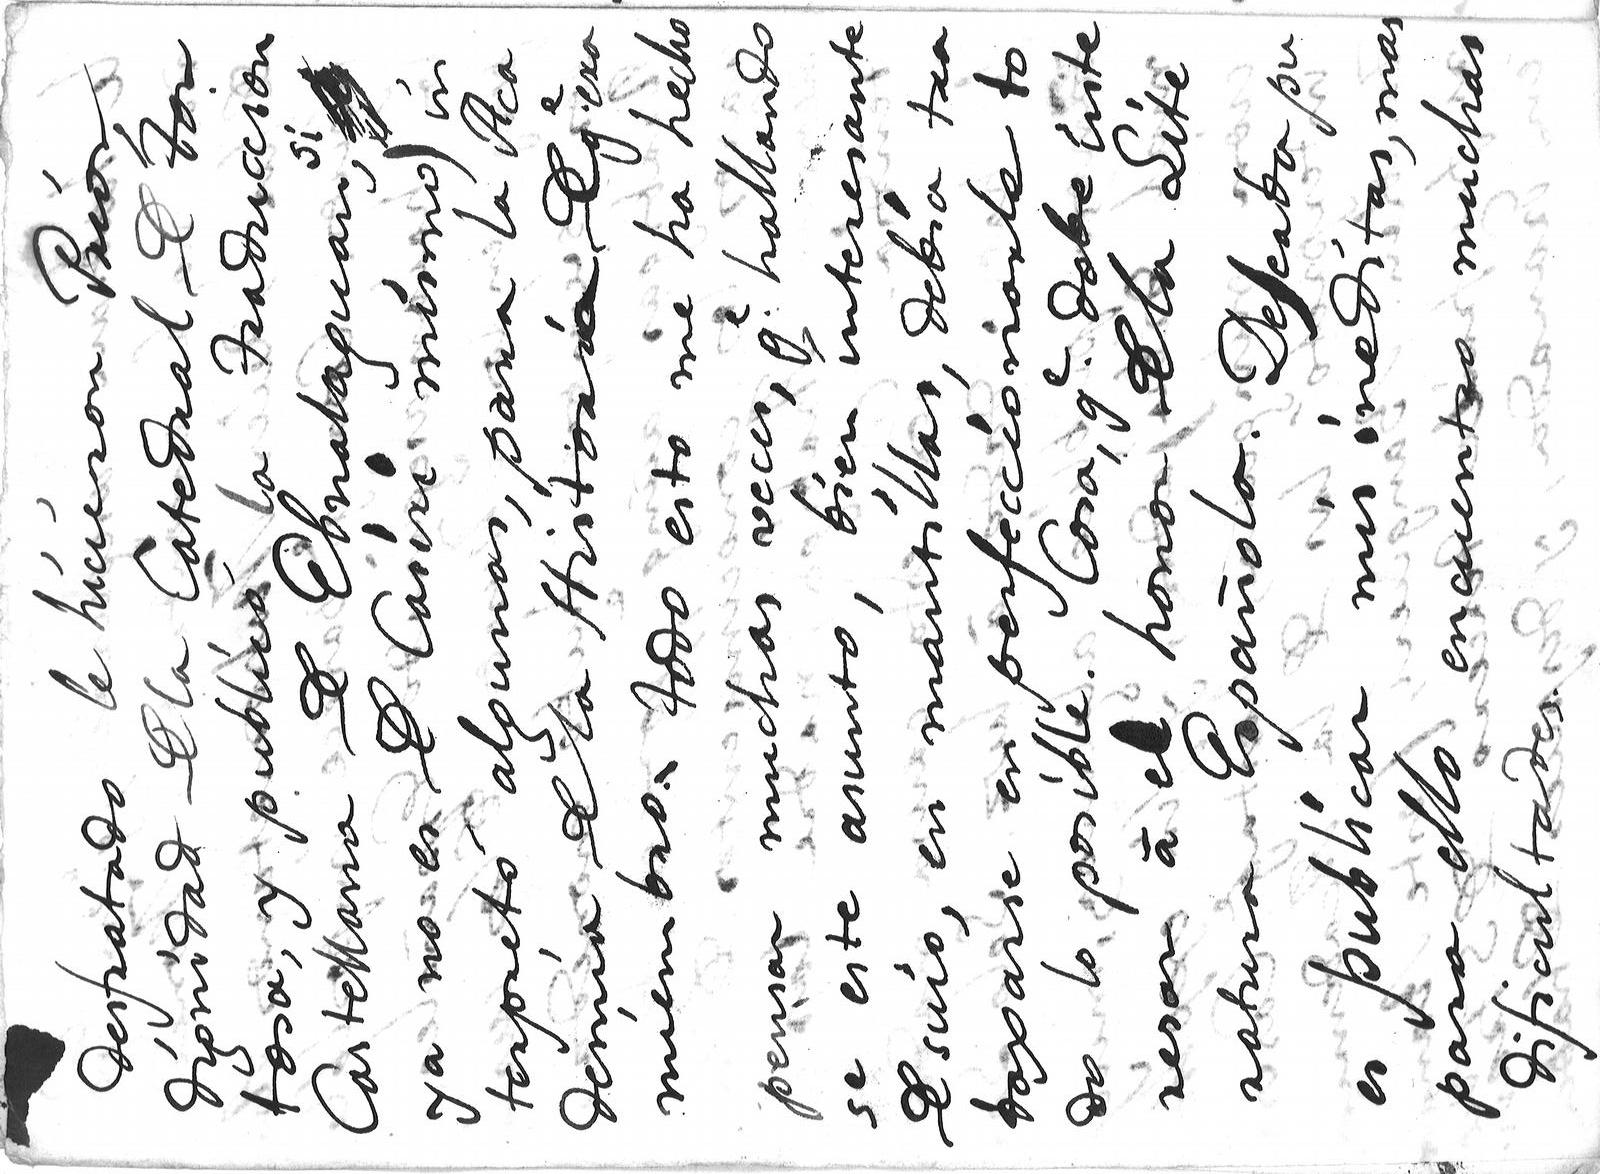 desfrutado le hicieron Prior
dignidad de la Catedral de Tor
tosa, y publicó la traduccion
Castellana de Ebnalaguan, si
ya no es de Casiri mismo) in
terpretó algunas, para la Aca
demia de la Historia de q.e era
miembro. Todo esto me ha hecho
pensar muchas veces, q.e hallando
se este asunto, bien interesante
de suio, en mantillas, debia tra
bajarse en perfeccionarle to
do lo posible. Cosa, q.e dobe inte
resar à el honor de la Lite
ratura Española. Deseaba pu
es publicar mis ineditas, mas
para ello encuentro muchas
dificultades.